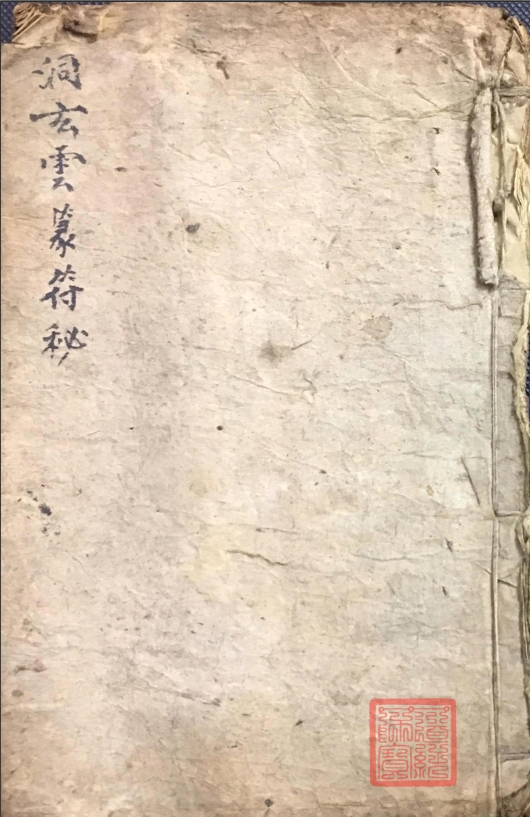 洞玄雲篆符秘